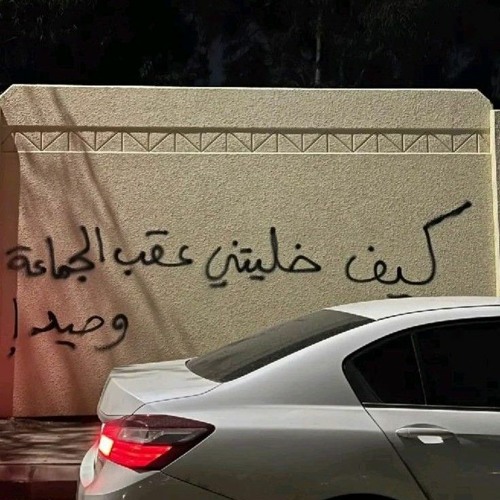 كيف خليتني عقب الجماعة
وحيد !